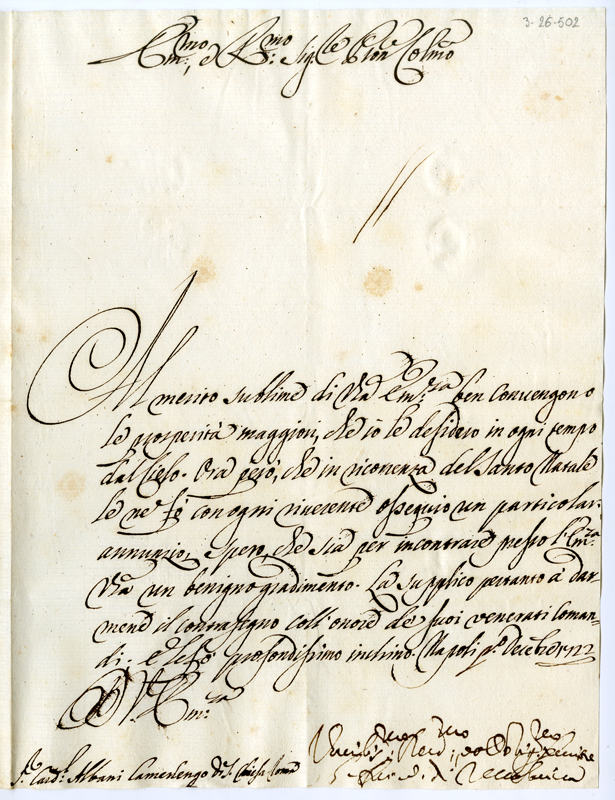 3-26-502
Em.mo, e R.mo Sig.re P.ron Col.mo
Al merito sublime di V.ra Em.za ben convengono
le prosperità maggiori, che io le desidero in ogni tempo
dal Cielo. Ora però, che in ricorrenza del Santo Natale
le ne fò con ogni riverente ossequio un particolar
annunzio, spero, che sia per incontrare presso l'Em.za
V.ra un benigno gradimento. La supplico pertanto a dar-
mene il contrasegno coll'onore de suoi venerati Coman-
di; e le fò profondissimo inchino. Napoli p.o Decebre 1722
D. V. Em.za
S.r Card.l Albani Camerlengo di S. Chiesa Roma